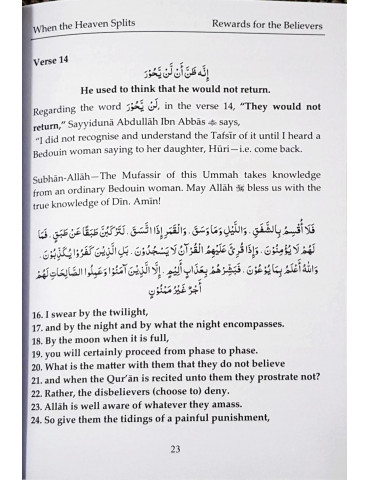 When the Heaven Splits Rewards for the Believers
Verse 14
إِنَّهُ ظَنَّ أَنْ لَّنْ يَّحُوْرَ
He used to think that he would not return.
Regarding the word لَنْ يَّحُوْرَ, in the verse 14, "They would not
return," Sayyidunā Abdullāh Ibn Abbās says,
"I did not recognise and understand the Tafsīr of it until I heard a
Bedouin woman saying to her daughter, Hūri—i.e. come back.
Subhān-Allāh—The Mufassir of this Ummah takes knowledge
from an ordinary Bedouin woman. May Allāh bless us with the
true knowledge of Dīn. Amīn!
فَلَا أُقْسِمُ بِالشَّفَقِ. وَاللَّيْلِ وَمَا وَسَقَ. وَالْقَمَرِ إِذَا اتَّسَقَ. لَتَرْكَبُنَّ طَبَقًا عَنْ طَبَقٍ. فَمَا
لَهُمْ لَا يُؤْمِنُوْنَ. وَإِذَا قُرِئَ عَلَيْهِمُ الْقُرْآنُ لَا يَسْجُدُوْنَ. بَلِ الَّذِيْنَ كَفَرُوْا يُكَذِّبُوْنَ.
وَاللهُ أَعْلَمُ بِمَا يُوْعُوْنَ. فَبَشِّرْهُمْ بِعَذَابٍ أَلِيْمٍ. إِلَّا الَّذِيْنَ آمَنُوْا وَعَمِلُوا الصَّالِحَاتِ لَهُمْ
أَجْرٌ غَيْرُ مَمْنُوْنٍ
16. I swear by the twilight,
17. and by the night and by what the night encompasses.
18. By the moon when it is full,
19. you will certainly proceed from phase to phase.
20. What is the matter with them that they do not believe
21. and when the Qur'ān is recited unto them they prostrate not?
22. Rather, the disbelievers (choose to) deny.
23. Allāh is well aware of whatever they amass.
24. So give them the tidings of a painful punishment,
23